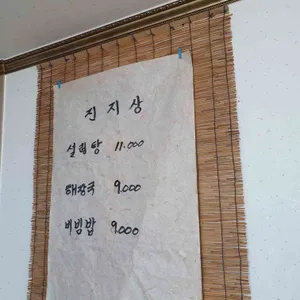 진지상
설렁탕 11.000
해장국 9.000
비빔밥 9.000